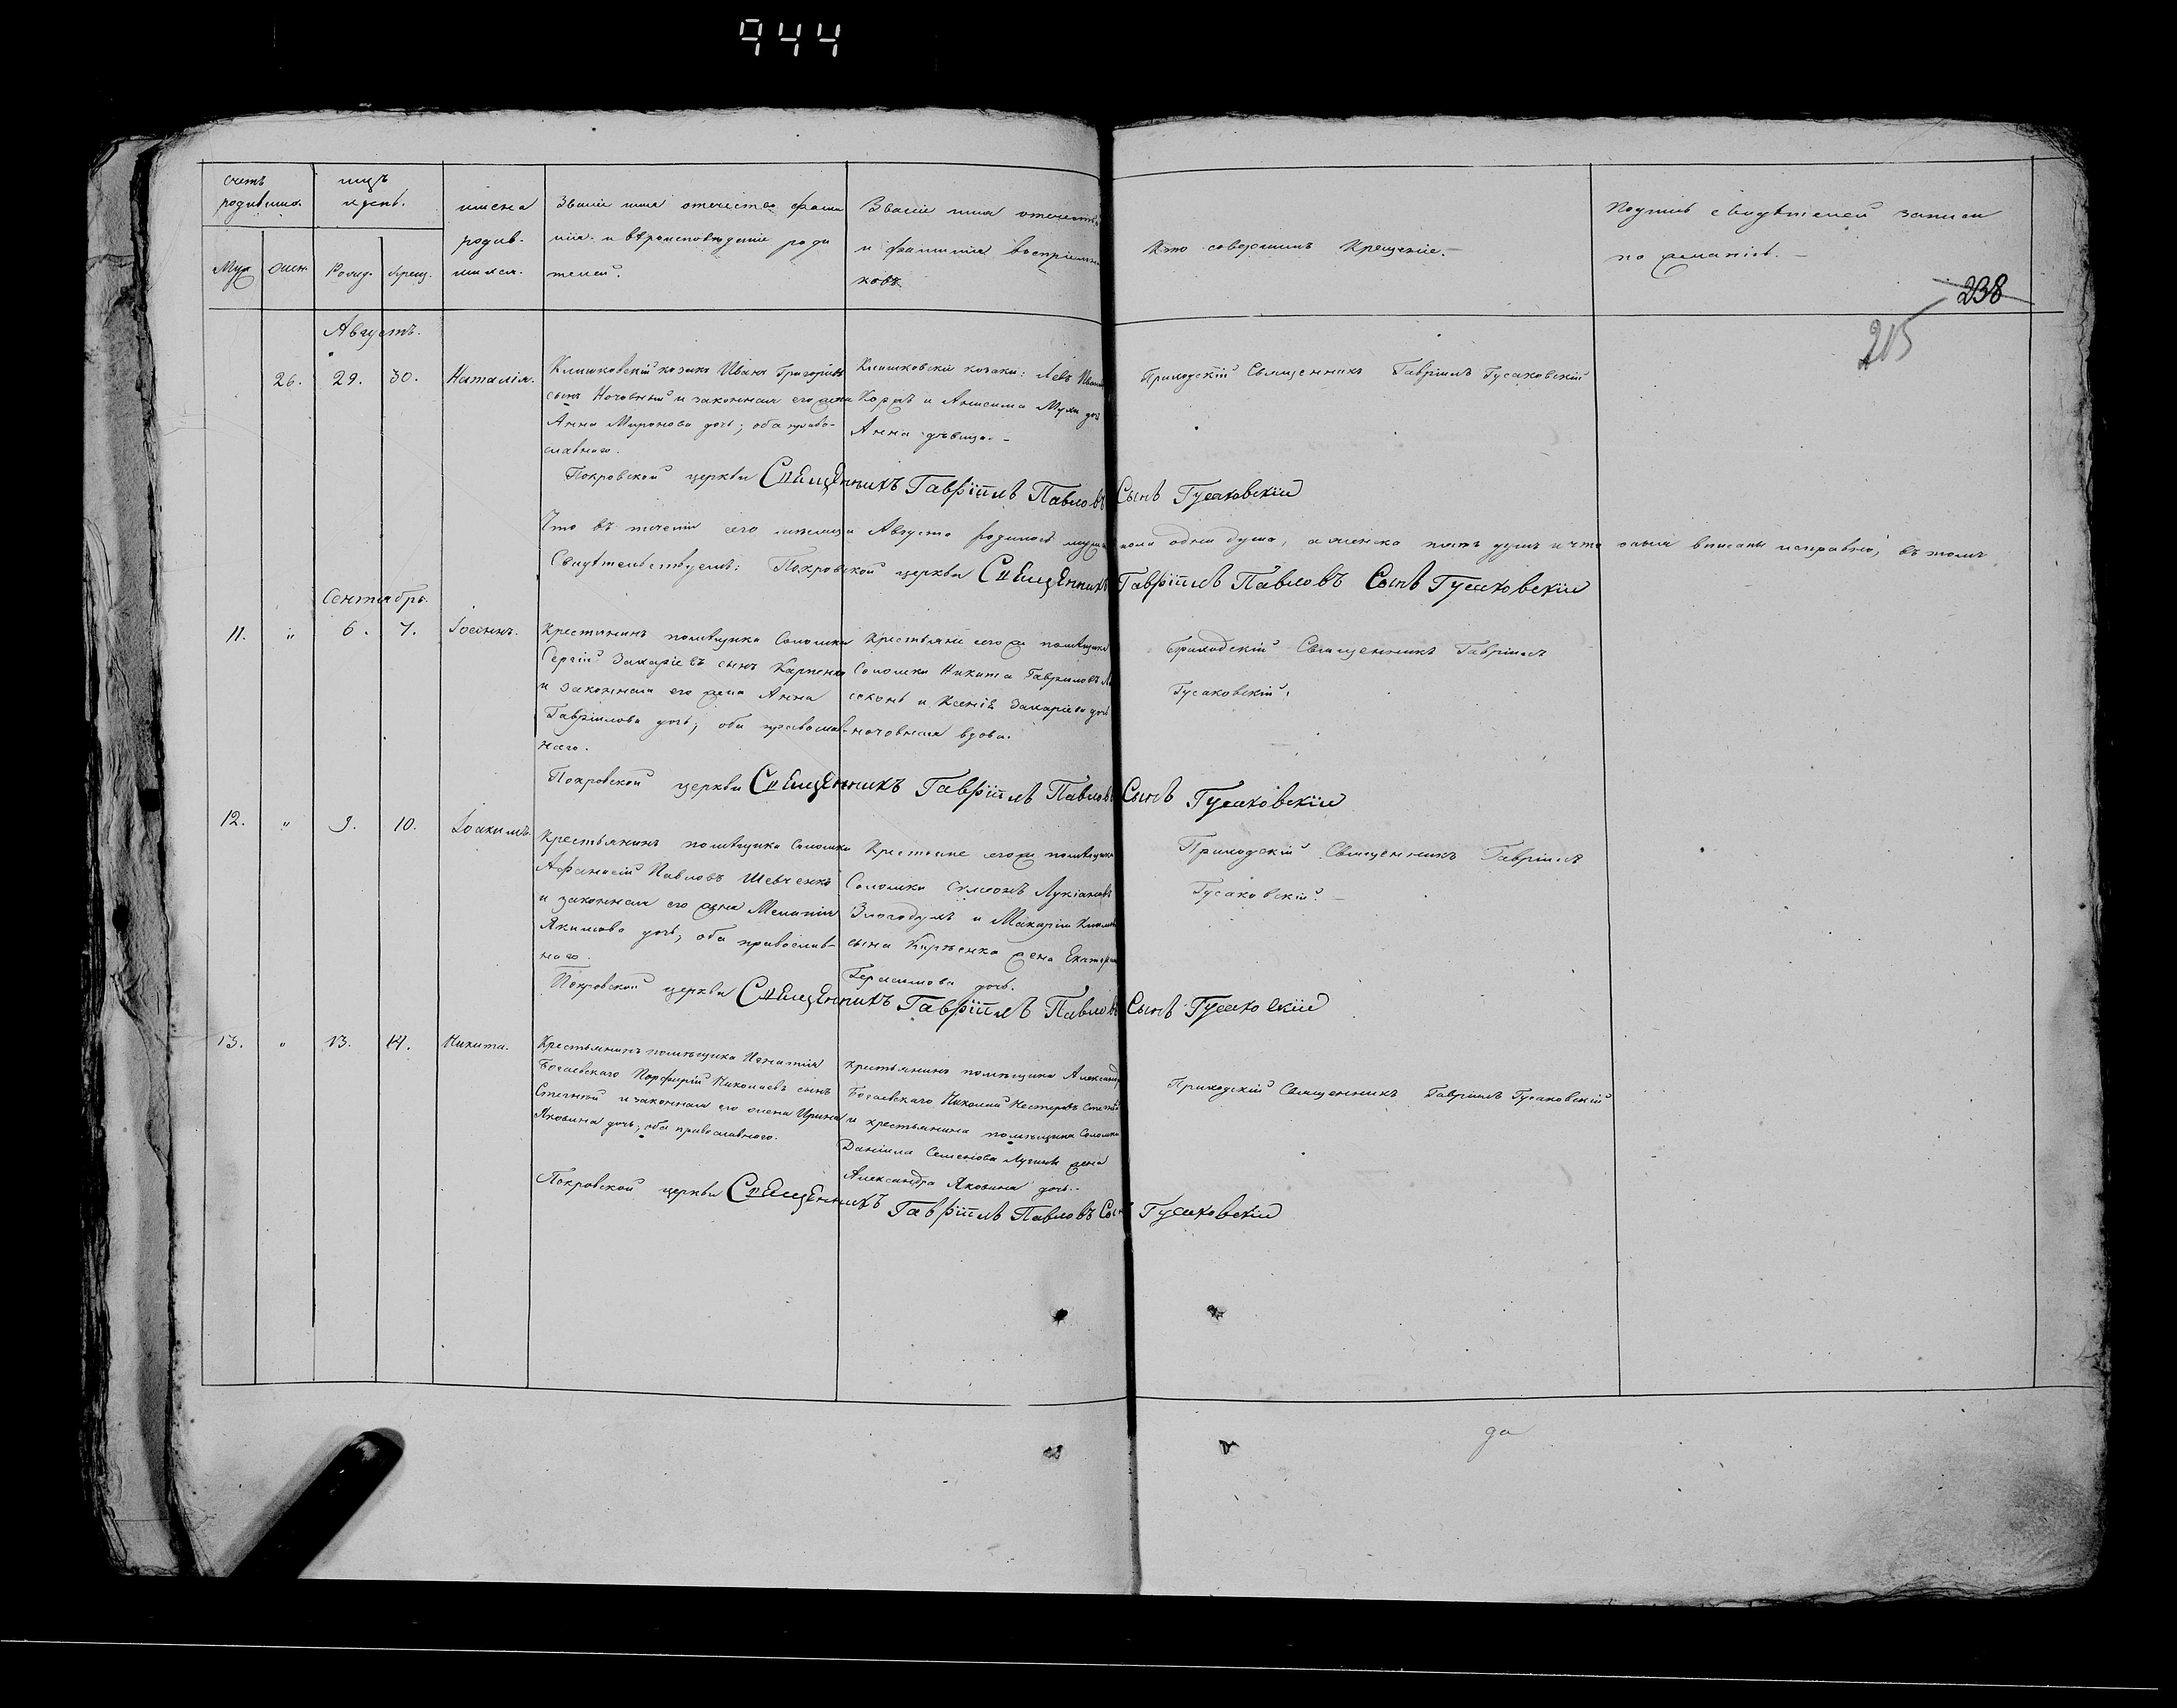 944
счетъ
родивших.
мцъ
и день.
имена
родив-
шихся.
Званіе имя отечество фами
лія и вѣроисповѣданіе роди
телей.
Званіе имя отечество
и фамилія воспріемни
ковъ
Кто совершилъ Крещеніе.
Подпись свидѣтелей записи
по желанію.
Муж
жен.
Рожд.
Крещ.
238
215
Августъ.
26. 29. 30. Наталія.
Клишковскій козакъ Иванъ Григоріевъ
сынъ Ночовный и законная его жена
Анна Миронова дочь; оба право-
славнаго.
Клишковскіе козаки: Левъ Иванов
Коржъ и Анисима Мухи дочь
Анна дѣвица.
Приходскій Священникъ Гавріилъ Гусаковскій
Покровской церкви Священникъ Гавріилъ Павловъ Сынъ Гусаковскій
Что въ теченіи сего мѣсяца Августа родилось мужска пола одна душа, а женска пять душъ и что оныя вписаны исправно, въ томъ
Свидѣтельствуемъ: Покровской церкви Священникъ Гавріилъ Павловъ Сынъ Гусаковскій
Сентябрь.
11. " 6. 7. Іоаннъ.
Крестянинъ помѣщика Соломки
Сергій Захаріевъ сынъ Карпенко
и законная его жена Анна
Гавріилова дочь; оба православ-
наго.
Крестьяне того же помѣщика
Соломки Никита Гавриловъ
и Ксенія Захаріева дочь
ночовная вдова.
Приходскій Священникъ Гавріилъ
Гусаковскій.
Покровской церкви Священникъ Гавріилъ Павловъ Сынъ Гусаковскій
12. " 9. 10. Іоакимъ.
Крестьянинъ помѣщика Соломки
Афанасій Павловъ Шевченко
и законная его жена Меланія
Якимова дочь; оба православ-
наго.
Крестьяне того же помѣщика
Соломки Симеонъ Лукіановъ
и Макарія
сына жена Екатери
Герасимова дочь.
Приходскій Священникъ Гавріилъ
Гусаковскій.
Покровской церкви Священникъ Гавріилъ Павловъ Сынъ Гусаковскій
13. " 13. 14. Никита.
Крестьянинъ помѣщика Игнатія
Богаевскаго Порфирій Николаевъ сынъ
Степной и законная его жена Ирина
Яковина дочь; оба православнаго.
крестьянинъ помѣщика Александр
Богаевскаго Николай Нестеровъ
и крестьянина помѣщика Соломки
Даніила Семенова жена
Александра Яковина дочь.
Приходскій Священникъ Гавріилъ Гусаковскій
Покровской церкви Священникъ Гавріилъ Павловъ Сынъ Гусаковскій
да